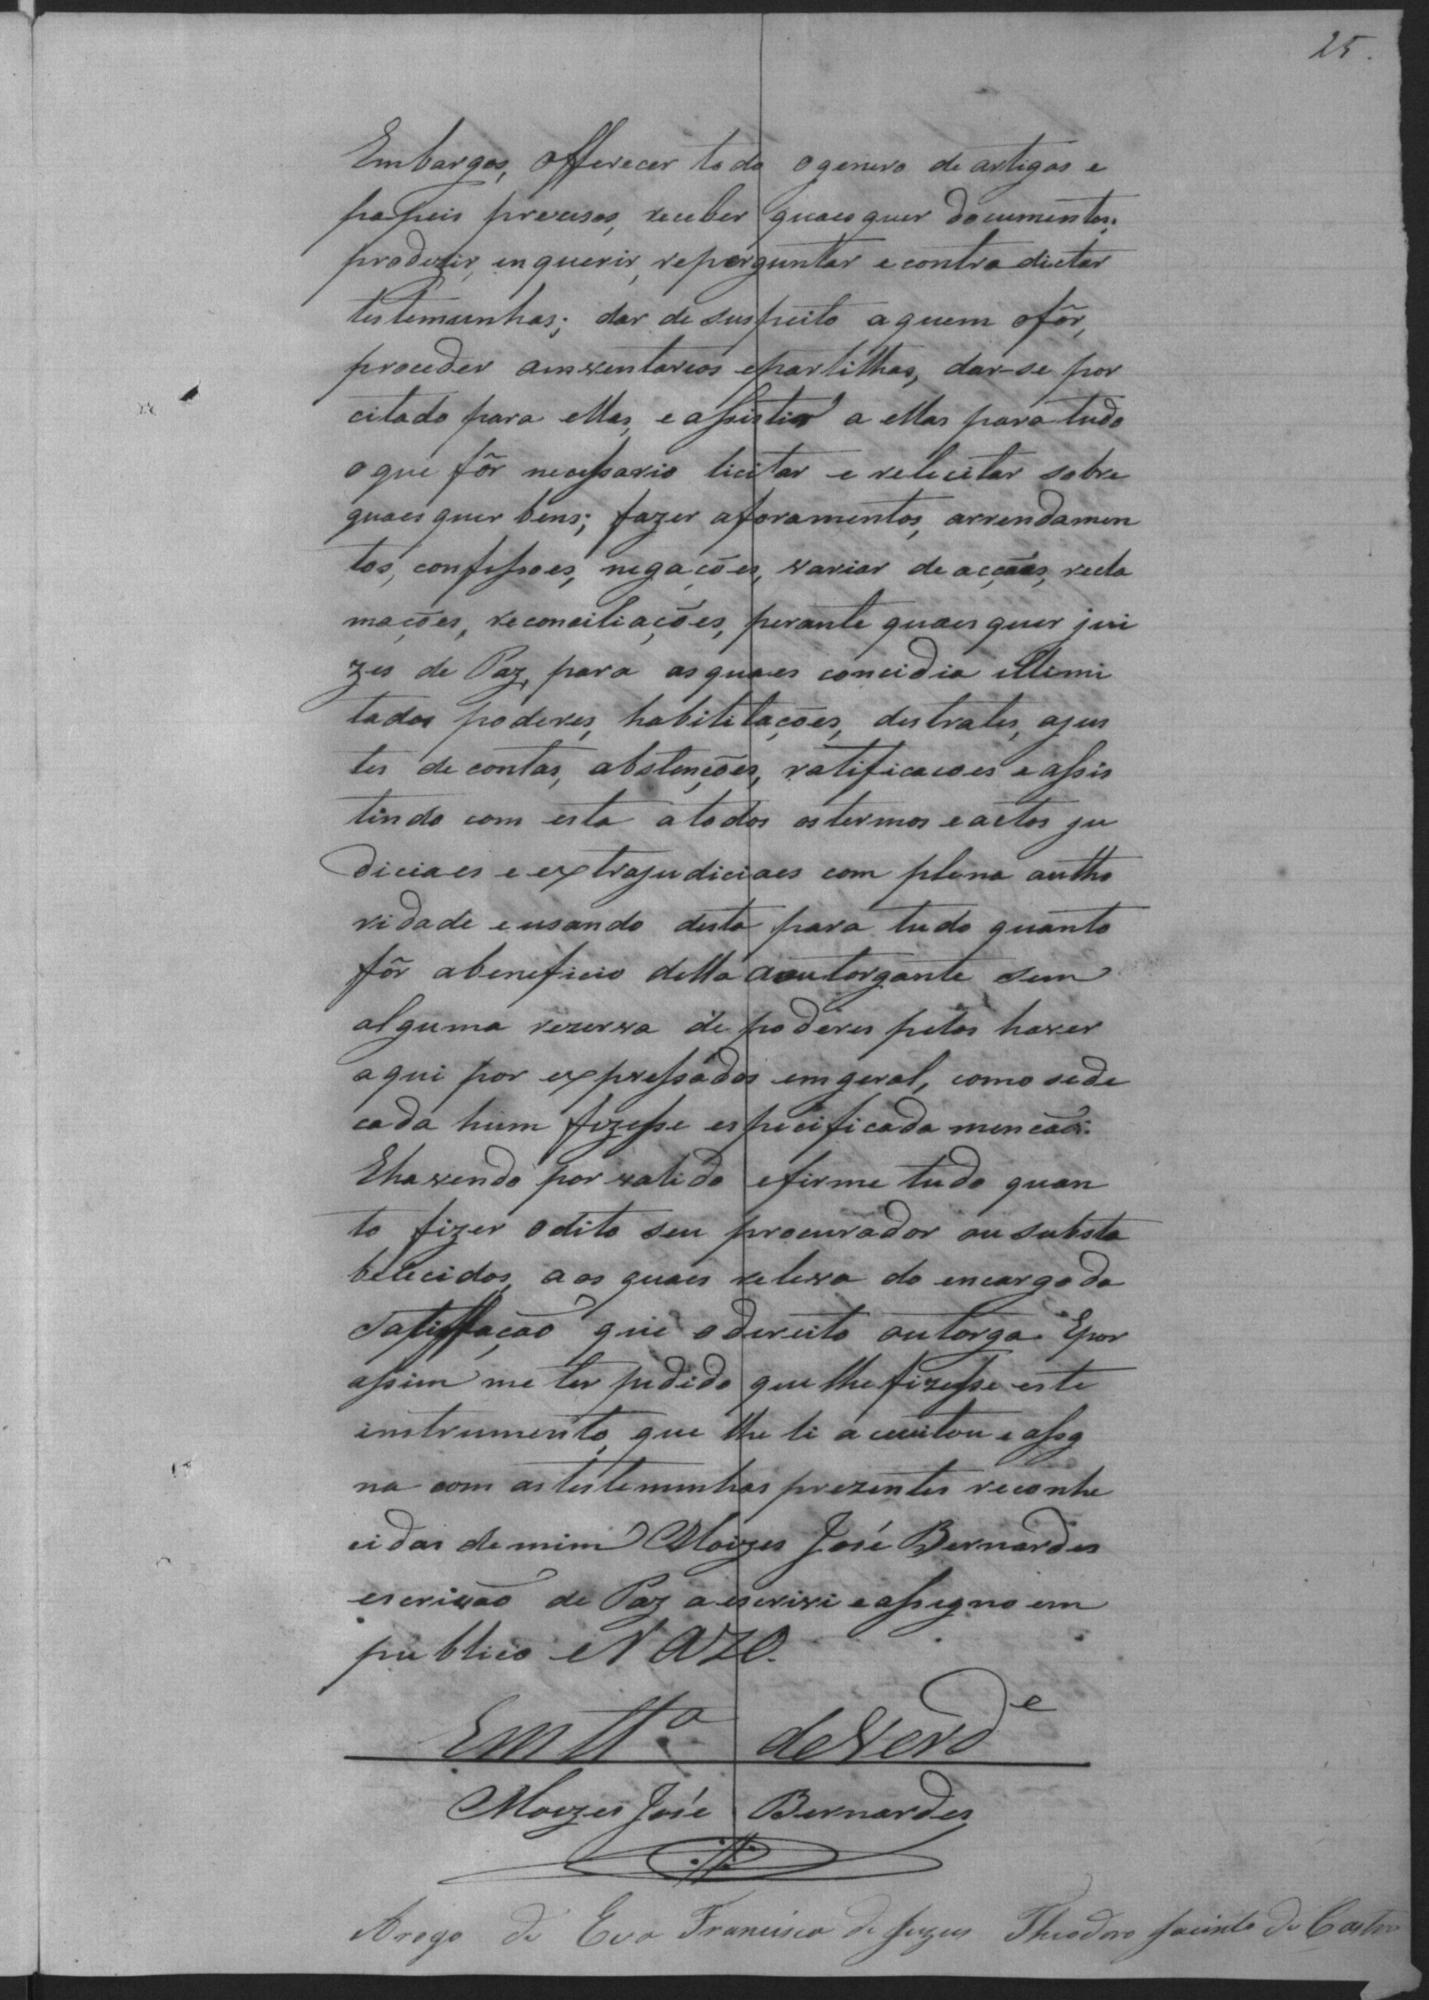 25.
Embargos, offerecer todo o genero de artigos e
papeis precisos, receber quaes quer documentos;
produzir, enquerir, reperguntar e contradictar
testemunhas; dar de suspeito a quem o fôr,
proceder a inventarios e partilhas, dar-se por
citado para ellas, e assistir a ellas para tudo
o que fôr necessario licitar e relicitar sobre
quaes quer bens; fazer aforamentos, arrendamen
tos, confissoes, negações, variar de acções, recla
mações, reconciliações, perante quaes quer jui
zes de Paz, para as quaes concidia illimi
tados poderes, habilitações, destrates, ajus
tes de contas, abstenções, ratificacoes e assis
tindo com esta a todos os termos e actos ju
diciaes e extrajudiciaes com plena autho
ridade e usando desta para tudo quanto
fôr a beneficio della outorgante sem
alguma rezerva de poderes pelos haver
aqui por expressados em geral, como se de
cada hum fizesse especificada mencão:
E havendo por valido e firme tudo quan
to fizer o dito seu procurador ou substa
belecidos, aos quaes releva do encargo da
satisffação que o direito outorga. E por
assim me ter pedido que lhe fizesse este
instrumento, que lhe li aceitou e assig
na com as testemunhas prezentes reconhe
cidas de mim Moizes José Bernardes
escrivão de Paz a escrivi e assegno em
publico e razo.
Em ttº de verde
Moizes José Bernardes
Arogo de Eva Francisca de Jezus Theodoro Jacinto de Castro